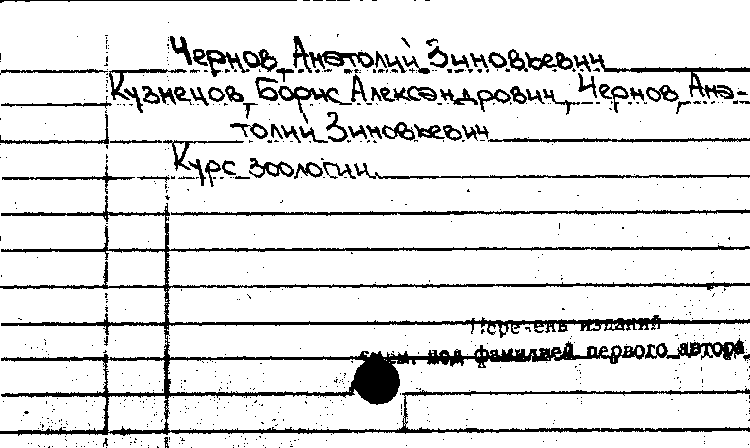 Чернов, Анатолий Зиновьевич
Кузнецов, Борис Александрович, Чернов, Ана-
толий Зиновьевич
Курс зоологии.
Перечень изданий
см. под фамилией первого автора